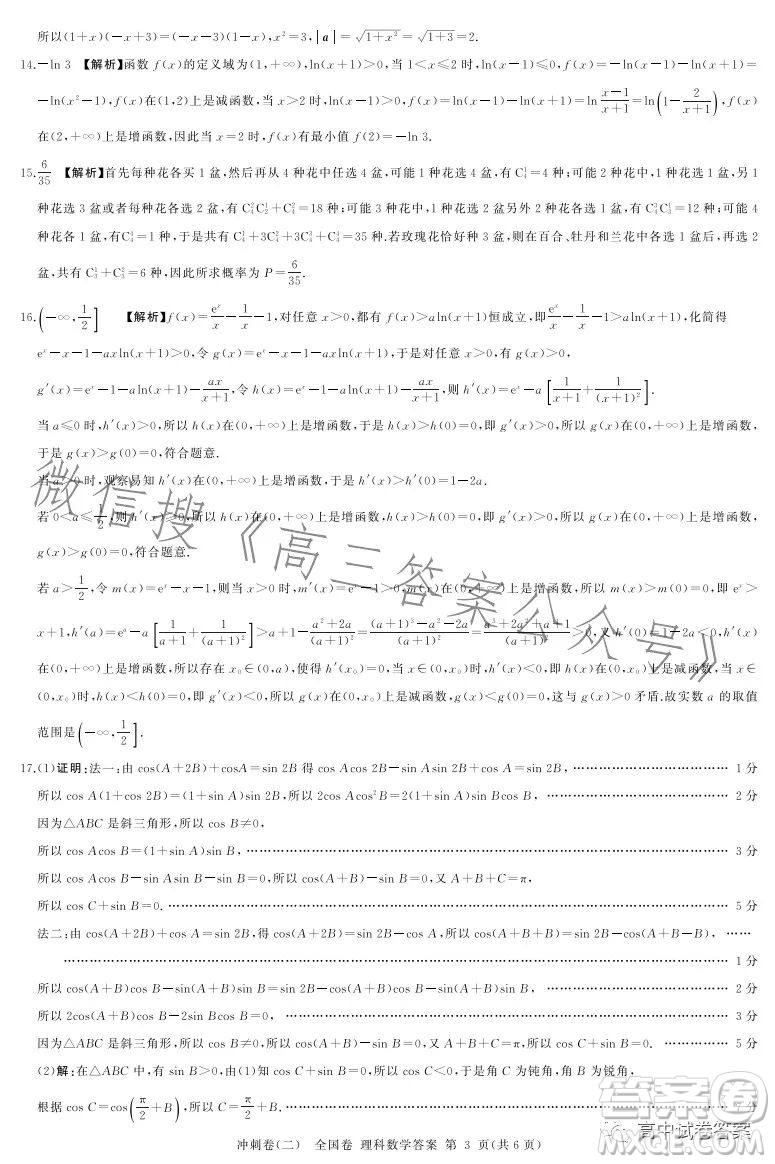 所以(1+x)(−x+3)=(−x−3)(1−x),x²=3,|a|=√(1+x²)=√(1+3)=2.
14.−ln 3 【解析】函数 f(x)的定义域为(1,+∞),ln(x+1)>0,当 1<x≤2 时,ln(x−1)≤0,f(x)=−ln(x−1)−ln(x+1)=
−ln(x²−1),f(x)在(1,2)上是减函数,当 x>2 时,ln(x−1)>0,f(x)=ln(x−1)−ln(x+1)=ln (x−1)/(x+1)=ln(1−2/(x+1)),f(x)
在(2,+∞)上是增函数,因此当 x=2 时,f(x)有最小值 f(2)=−ln 3.
15.6/35 【解析】首先每种花各买 1 盆,然后再从 4 种花中任选 4 盆,可能 1 种花选 4 盆,有 C₄¹=4 种;可能 2 种花中,1 种花选 1 盆,另 1
种花选 3 盆或者每种花各选 2 盆,有 C₄²C₂¹+C₄²=18 种;可能 3 种花中,1 种花选 2 盆另外 2 种花各选 1 盆,有 C₄³C₃¹=12 种;可能 4
种花各 1 盆,有C₄⁴=1 种,于是共有 C₄¹+3C₄²+3C₄³+C₄⁴=35 种.若玫瑰花恰好种 3 盆,则在百合、牡丹和兰花中各选 1 盆后,再选 2
盆,共有 C₃¹+C₃²=6 种,因此所求概率为 P=6/35.
16.(−∞,1/2] 【解析】f(x)=eˣ/x−1/x−1,对任意 x>0,都有 f(x)>aln(x+1)恒成立,即eˣ/x−1/x−1>aln(x+1),化简得
eˣ−x−1−axln(x+1)>0,令 g(x)=eˣ−x−1−axln(x+1),于是对任意 x>0,有 g(x)>0,
g′(x)=eˣ−1−aln(x+1)−ax/(x+1),令 h(x)=eˣ−1−aln(x+1)−ax/(x+1),则 h′(x)=eˣ−a[1/(x+1)+1/(x+1)²].
当 a≤0 时,h′(x)>0,所以 h(x)在(0,+∞)上是增函数,于是 h(x)>h(0)=0,即 g′(x)>0,所以 g(x)在(0,+∞)上是增函数,
于是 g(x)>g(0)=0,符合题意.
当 a>0 时,观察易知 h′(x)在(0,+∞)上是增函数,于是 h′(x)>h′(0)=1−2a.
若 0<a≤1/2,则 h′(x)>0,所以 h(x)在(0,+∞)上是增函数,h(x)>h(0)=0,即 g′(x)>0,所以 g(x)在(0,+∞)上是增函数,
g(x)>g(0)=0,符合题意.
若 a>1/2,令 m(x)=eˣ−x−1,则当 x>0 时,m′(x)=eˣ−1>0,m(x)在(0,+∞)上是增函数,所以 m(x)>m(0)=0,即 eˣ>
x+1,h′(a)=eᵃ−a[1/(a+1)+1/(a+1)²]>a+1−(a²+2a)/(a+1)²=((a+1)³−a²−2a)/(a+1)²=(a³+2a²+a+1)/(a+1)²>0,又 h′(0)=1−2a<0,h′(x)
在(0,+∞)上是增函数,所以存在 x₀∈(0,a),使得 h′(x₀)=0,当 x∈(0,x₀)时,h′(x)<0,即 h(x)在(0,x₀)上是减函数,当 x∈
(0,x₀)时,h(x)<h(0)=0,即 g′(x)<0,所以 g(x)在(0,x₀)上是减函数,g(x)<g(0)=0,这与 g(x)>0 矛盾.故实数 a 的取值
范围是(−∞,1/2].
17.(1)证明:法一:由 cos(A+2B)+cosA=sin 2B 得 cos Acos 2B−sin Asin 2B+cos A=sin 2B, …… 1 分
所以 cos A(1+cos 2B)=(1+sin A)sin 2B,所以 2cos Acos²B=2(1+sin A)sin Bcos B, …… 2 分
因为△ABC 是斜三角形,所以 cos B≠0,
所以 cos Acos B=(1+sin A)sin B, …… 3 分
所以 cos Acos B−sin Asin B−sin B=0,所以 cos(A+B)−sin B=0,又 A+B+C=π,
所以 cos C+sin B=0. …… 5 分
法二:由 cos(A+2B)+cos A=sin 2B,得 cos(A+2B)=sin 2B−cos A,所以 cos(A+B+B)=sin 2B−cos(A+B−B), ……
…… 1 分
所以 cos(A+B)cos B−sin(A+B)sin B=sin 2B−cos(A+B)cos B−sin(A+B)sin B, …… 2 分
所以 2cos(A+B)cos B−2sin Bcos B=0, …… 3 分
因为△ABC 是斜三角形,所以 cos B≠0,所以 cos(A+B)−sin B=0,又 A+B+C=π,所以 cos C+sin B=0. …… 5 分
(2)解:在△ABC 中,有 sin B>0,由(1)知 cos C+sin B=0,所以 cos C<0,于是角 C 为钝角,角 B 为锐角,
根据 cos C=cos(π/2+B),所以 C=π/2+B. …… 7 分
冲刺卷(二) 全国卷 理科数学答案 第 3 页(共 6 页)
微信搜《高三答案公众号》
高中试卷答案